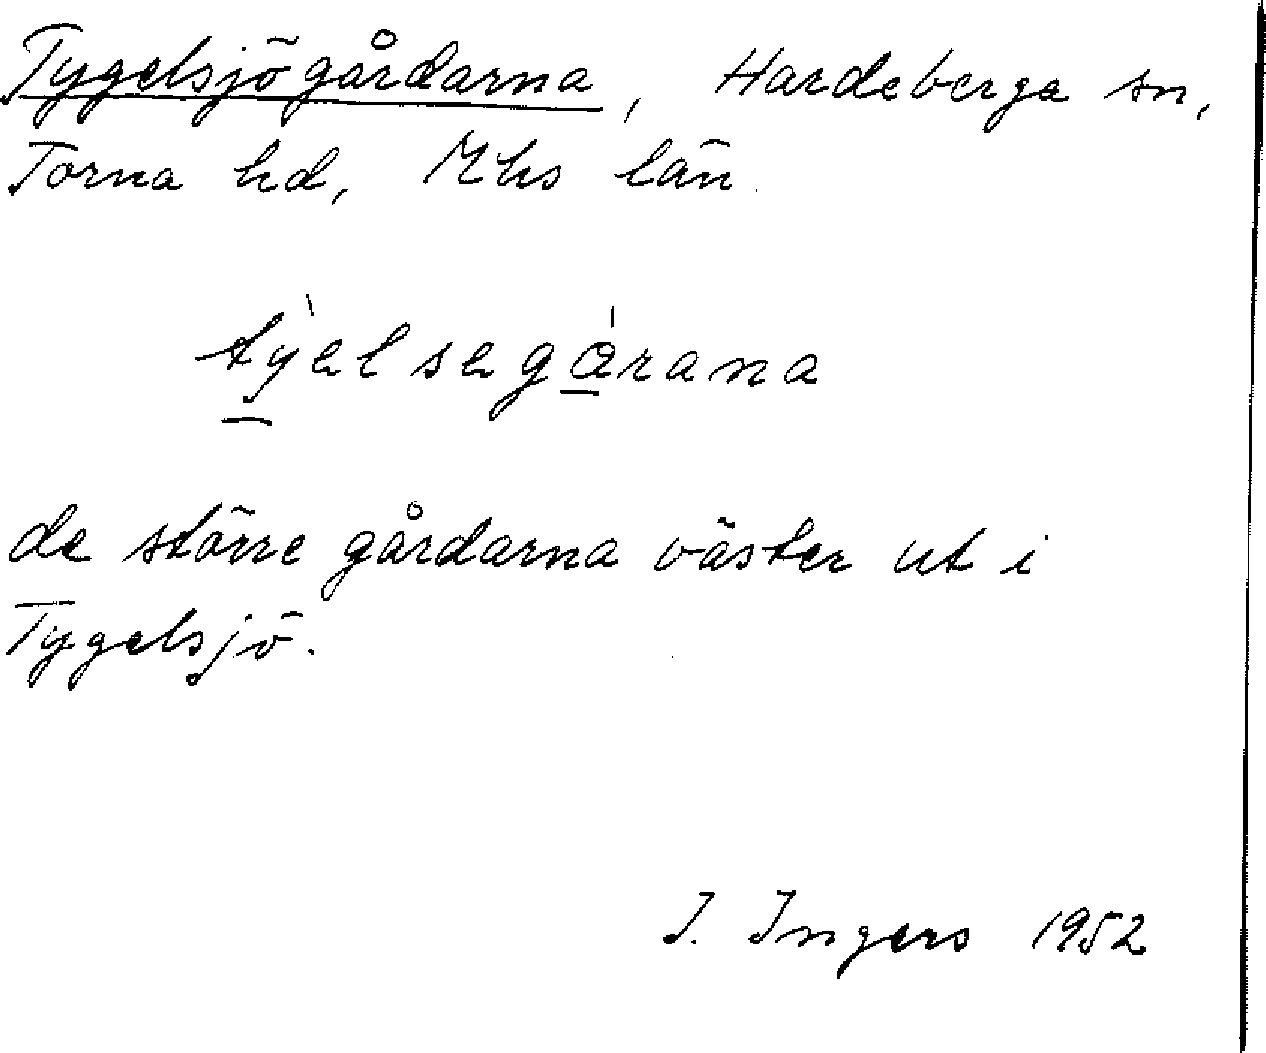 Tygelsjögårdarna, Hardeberga sn,
Torna hd, Mhs län
tỳelsegárana
de större gårdarna väster ut i
Tygelsjö.
I. Ingers 1952